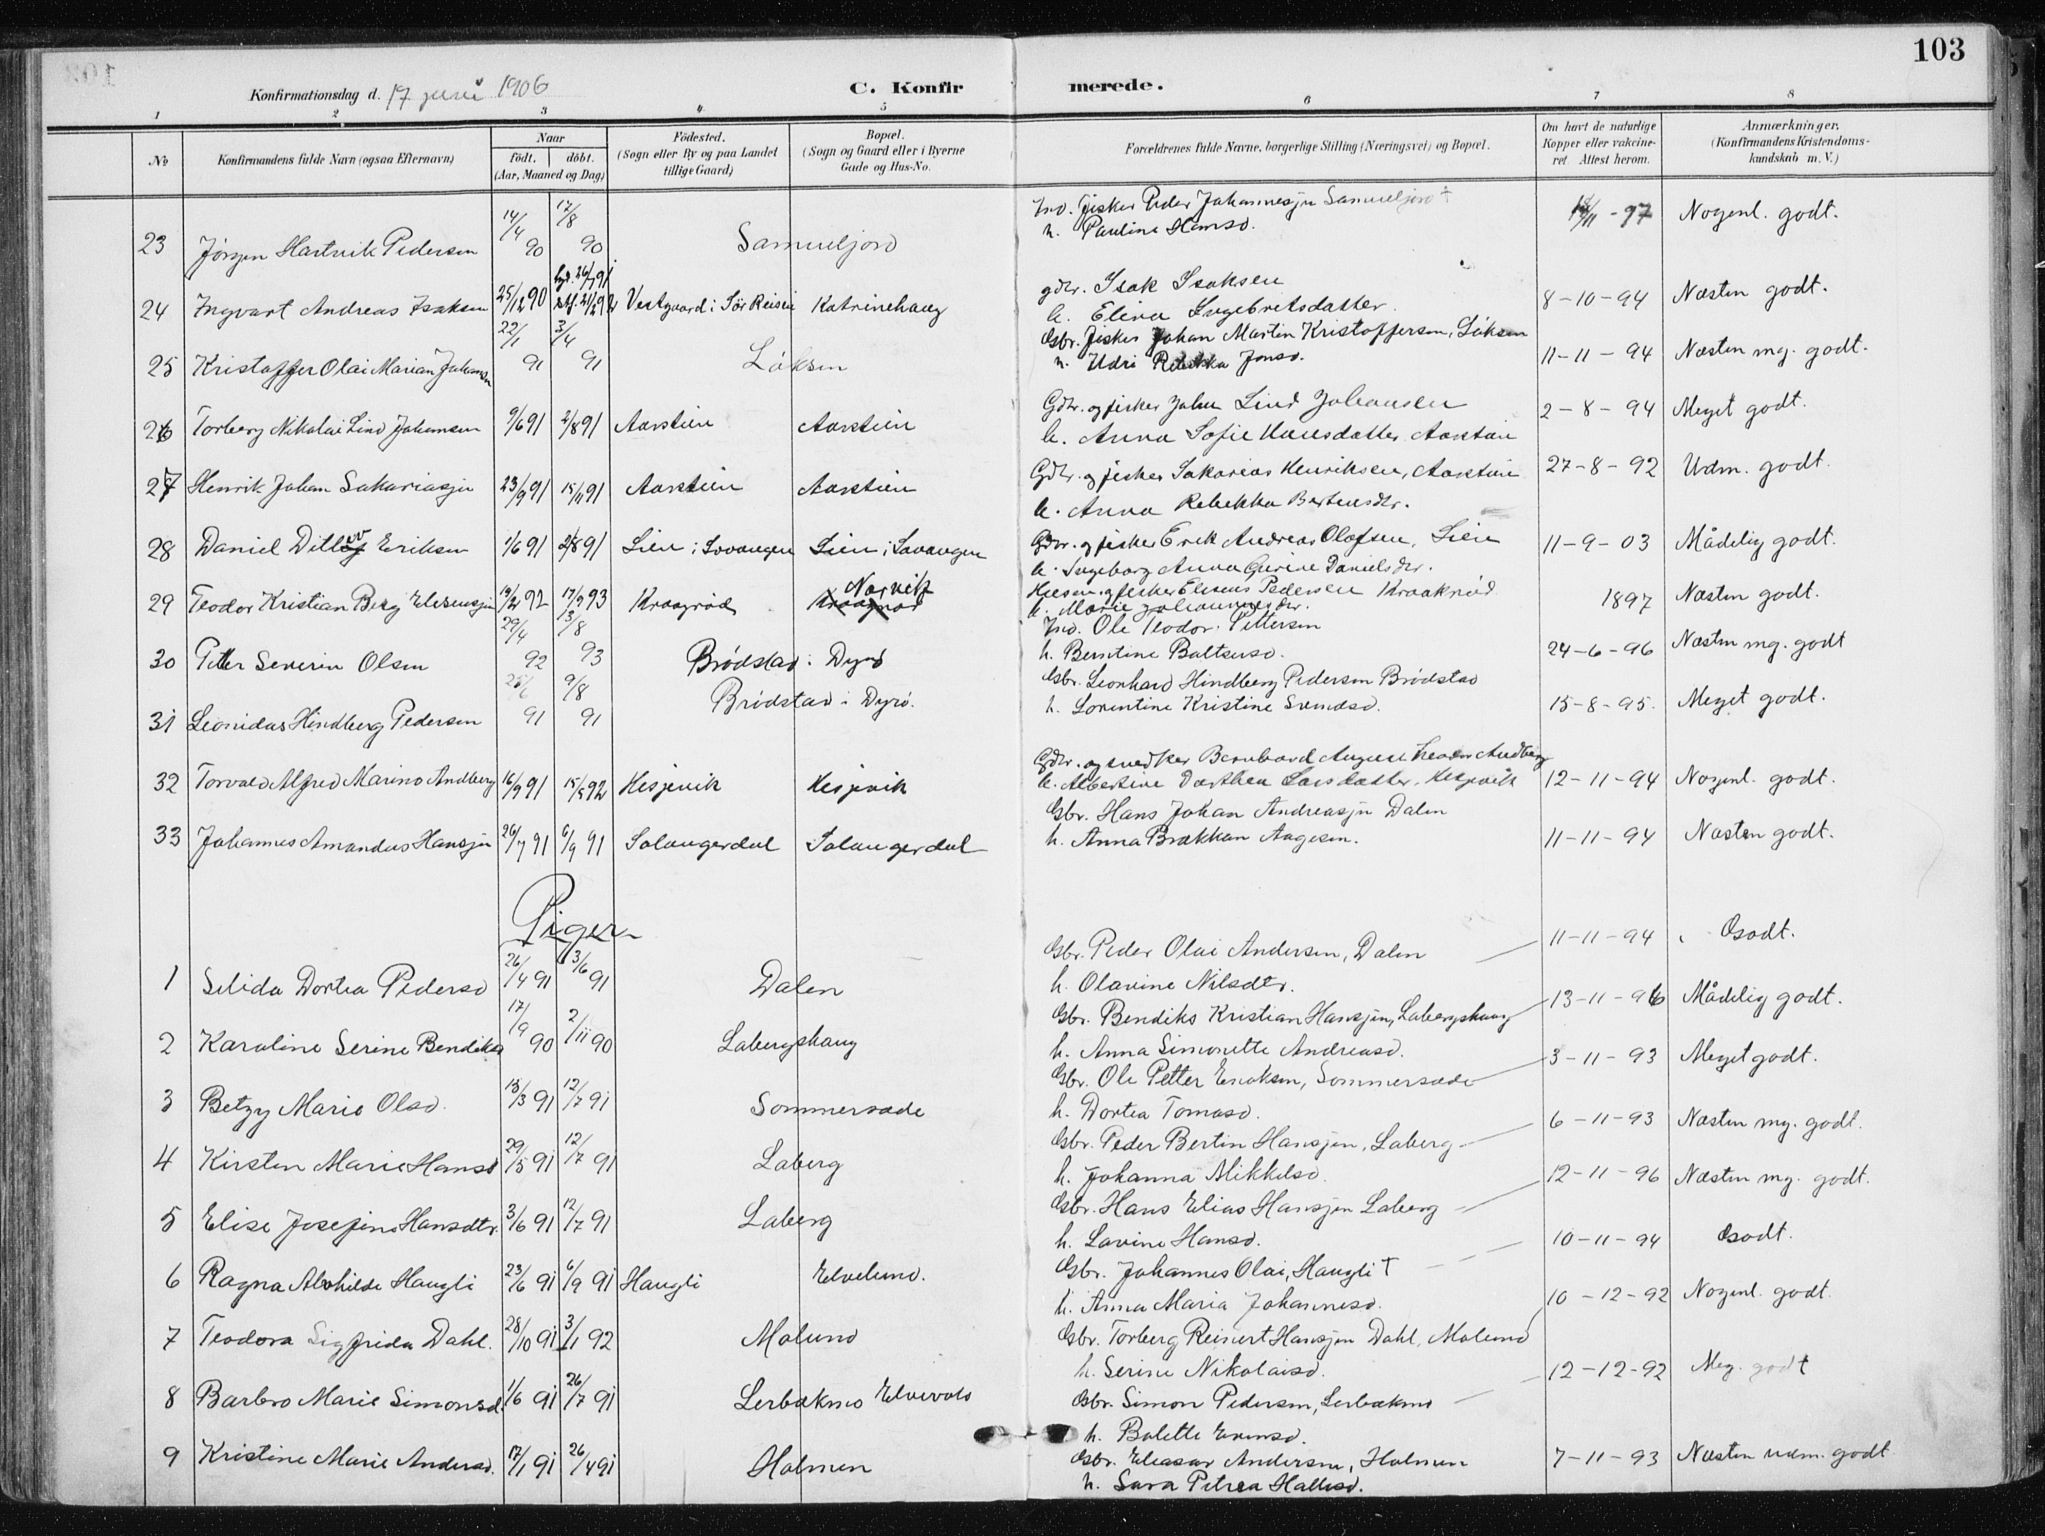 103
Konfirmationsdag d. 17 juni 1906 C. Konfirmerede.
1 2 3 4 5 6 7 8
No
Konfirmandens fulde Navn (ogsaa Efternavn)
Naar
födt. döbt.
(Aar, Maaned og Dag)
Födested.
(Sogn eller By og paa Landet
tillige Gaard)
Bopæl.
(Sogn og Gaard eller i Byerne
Gade og Hus-No.
Forældrenes fulde Navne, borgerlige Stilling (Næringsvei) og Bopæl.
Om havt de naturlige
Kopper eller vakcine-
ret. Attest herom.
Anmærkninger.
(Konfirmandens Kristendoms-
kundskab m. V.)
Ind. fisker Peder Johannesjn Samueljord †
23 Jörgen Hartvik Pedersen 14/4 90 17/8 90 Samueljord h. Pauline Hansd. /11-97 Nogenl. godt.
gdbr. Isak Isaksen
24 Ingvart Andreas Isaksen 25/12 90 Vestgaard i Sör Reisen Katrinehaug h. Elina Ingebretsdatter 8-10-94 Næsten godt.
Gbr. fisker Johan Martin Kristoffersen, Löksen
25 Kristoffer Olai Marian Johansen 22/1 91 3/4 91 Löksen h. Udri Rebekka Jonsd. 11-11-94 Næsten mg. godt.
Gdbr. og fisker Johan Lind Johansen
26 Torberg Nikolai Lind Johansen 9/6 91 2/8 91 Aarstien Aarstien h. Anna Sofie Hansdatter Aarstein 2-8-94 Meget godt.
Gdbr. og fisker Sakarias Henriksen, Aarstein
27 Henrik Johan Sakariasjn 23/9 91 15/11 91 Aarstien Aarstien h. Anna Rebekka Bertensdr. 27-8-92 Udm. godt.
Gdbr. og fisker Erik Andreas Olafsen, Lien
28 Daniel Ditlev Eriksen 1/6 91 2/8 91 Lien i Lavangen Lien i Lavangen h. Ingeborg Anna Gurine Danielsdr. 11-9-03 Mådelig godt.
Husm. og fisker Elisæus Pedersen Kraakröd
29 Teodor Kristian Berg Elisensjn 92 17/9 93 Kraagröd Narvik h. Marie Johannesdr. 1897 Næsten godt.
Ind. Ole Teodor Pettersen
30 Petter Severin Olsen 29/4 92 13/8 93 Brödstad i Dyrö h. Berntine Baltsersd. 24-6-96 Næsten mg. godt
Gbr. Leonhard Hindberg Pedersen Brödstad
31 Leonidas Hindberg Pedersen 25/6 91 9/8 91 Brödstad i Dyrö. h. Lorentine Kristine Svendsd. 15-8-95. Meget godt.
Gdbr. og snedker Bernhard August Andberg
32 Torvald Alfred Marino Andberg 16/9 91 15/5 92 Hesjevik Hesjevik h. Albertine Dorthea Larsdatter, Hesjevik 12-11-94 Nogenl. godt.
Gbr. Hans Johan Andreasjn Dalen
33 Johannes Amandus Hansjn 26/7 91 6/9 91 Salangerdal Salangerdal h. Anna Brækkan Aagesen. 11-11-94 Næsten godt.
Piger
Gbr. Peder Olai Andersen, Dalen
1 Selida Dortea Pedersd 26/4 91 3/6 91 Dalen h. Olavine Nilsdtr. 11-11-94 Godt.
Gbr. Bendiks Kristian Hansjen, Labergshaug
2 Karoline Serine Bendiksd 17/9 90 2/11 90 Labergshaug h. Anna Simonette Andreasd. 13-11-96 Mådelig godt.
Gbr. Ole Petter Eriksen, Sommersæde
3 Betzy Marie Olsd. 15/3 91 12/7 91 Sommersæde h. Dortea Tomasd. 3-11-93 Meget godt.
Gbr. Peder Bertin Hansjen, Laberg
4 Kirsten Marie Hansd 29/5 91 12/7 91 Laberg h. Johanna Mikkelsd. 6-11-93 Næsten mg. godt.
Gbr. Hans Elias Hansjen Laberg
5 Elise Josefine Hansdtr. 3/6 91 12/7 91 Laberg h. Lavine Hansd. 12-11-96 Næsten mg. godt.
Gbr. Johannes Olai, Haugli †
6 Ragna Alvhilde Haugli 23/6 91 6/9 91 Haugli Elvelund. h. Anna Maria Johannesd. 10-11-94 Godt.
Gbr. Torberg Reinert Hansjen Dahl, Molund
7 Teodora Sigfrida Dahl. 28/10 91 3/1 92 Molund h. Serine Nikolaisd. 10-12-92 Nogenl. godt.
Gbr. Simon Pedersen, Lerbækmo
8 Barbro Marie Simonsd 1/6 91 26/7 91 Lerbækmo Elvevold h. Bolette Evensd. 12-12-92 Meg. godt
Gbr. Eleasar Andersen, Holmen
9 Kristine Marie Andersd. 17/1 91 26/4 91 Holmen h. Sara Petrea Hallesd. 7-11-93 Næsten udm. godt